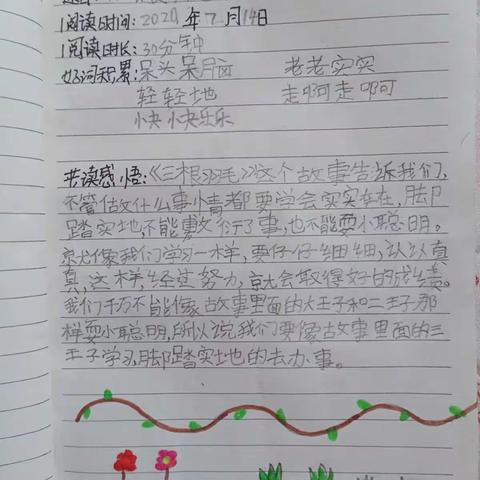 阅读时间:2020年7月14日
阅读时长:30分钟
好词积累:呆头呆脑 老老实实
轻轻地 走啊走啊
快快乐乐
共读感悟:《三根羽毛》这个故事告诉我们,
不管做什么事情都要学会实实在在,脚
踏实地不能敷衍了事,也不能耍小聪明。
就像我们学习一样,要仔仔细细,认认真
真,这样,经过努力,就会取得好的成绩。
我们千万不能像故事里面的大王子和二王子那
样耍小聪明,所以说我们要像故事里面的三
王子学习,脚踏实地的去办事。